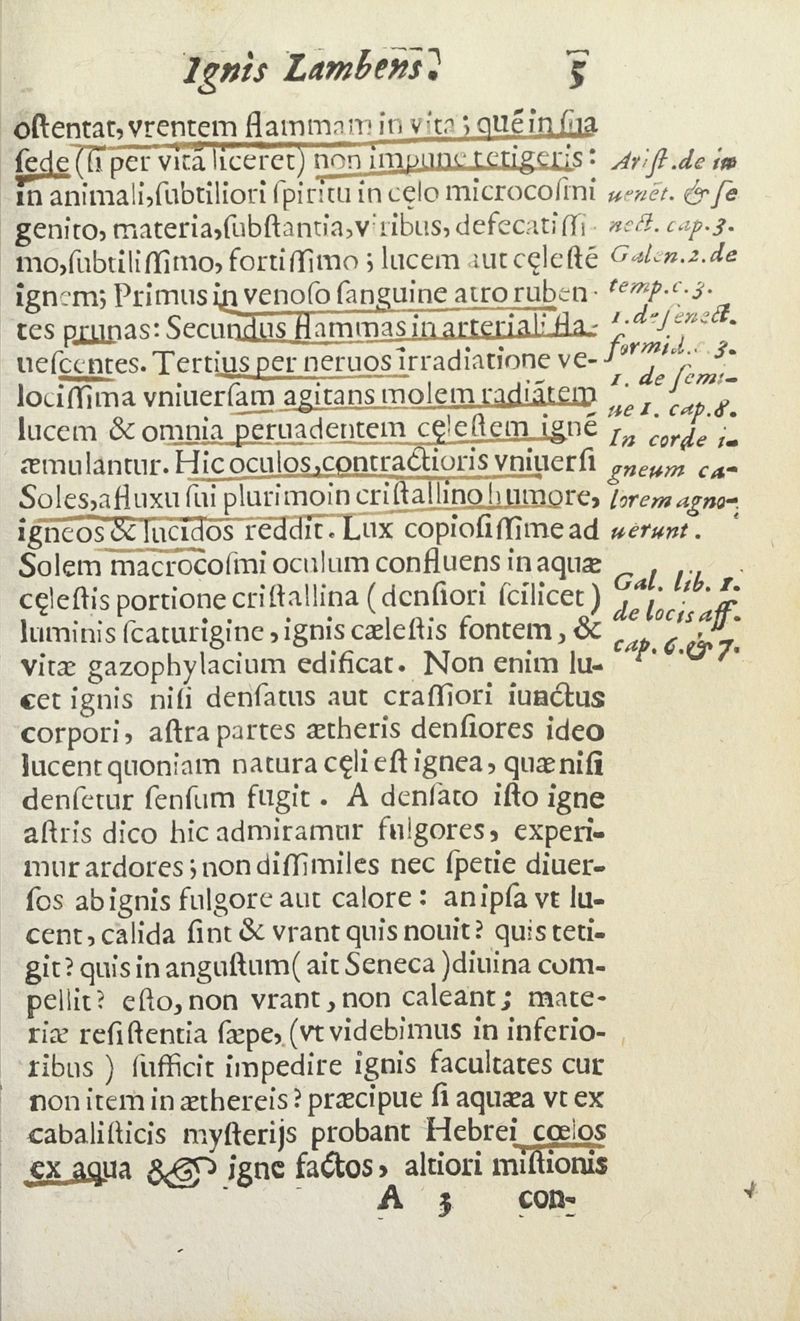 Ignis Lambens. 5
oſtentat, vrentem flammam in vita ; quē in ſua
ſede (ſi per vitā liceret) non impune tetigeris :
in animali, ſubtiliori ſpiritu in cęlo microcoſmi
genito, materia, ſubſtantia, viribus, defecatiſſi-
mo, ſubtiliſſimo, fortiſſimo ; lucem aut cęleſtē
ignem; Primus in venoſo ſanguine atro ruben-
tes prunas: Secundus flammas in arteriali fla-
ueſcentes. Tertius per neruos irradiatione ve-
lociſſima vniuerſam agitans molem radiātem
lucem & omnia peruadentem cęleſtem ignē
æmulantur. Hic oculos, contractioris vniuerſi
Soles, afluxu ſui plurimo in criſtallino humore,
igneos & lucidos reddit. Lux copioſiſſime ad
Solem macrocoſmi oculum confluens in aquæ
cęleſtis portione criſtallina ( denſiori ſcilicet )
luminis ſcaturigine, ignis cæleſtis fontem, &
vitæ gazophylacium edificat. Non enim lu-
cet ignis niſi denſatus aut craſſiori iunctus
corpori, aſtra partes ætheris denſiores ideo
lucent quoniam natura cęli eſt ignea, quæ niſi
denſetur ſenſum fugit . A denſato iſto igne
aſtris dico hic admiramur fulgores, experi-
mur ardores ; non diſſimiles nec ſpetie diuer-
ſos ab ignis fulgore aut calore : an ipſa vt lu-
cent, calida ſint & vrant quis nouit ? quis teti-
git ? quis in anguſtum ( ait Seneca ) diuina com-
pellit ? eſto, non vrant, non caleant ; mate-
riæ reſiſtentia ſæpe, (vt videbimus in inferio-
ribus ) ſufficit impedire ignis facultates cur
non item in æthereis ? præcipue ſi aquæa vt ex
cabaliſticis myſterijs probant Hebrei cœlos
ex aqua & igne factos, altiori miſtionis
A 3 con-
Ariſt .de
uenēt. & ſe
nect. cap.3.
Galen.2.de
temp.c.3.
1.de ſenect.
3.
1. de ſemi-
ne 1. cap.8.
In corde i-
gneum ca-
lorem agno-
uerunt.
Gal. lib. 1.
de locis aff.
cap. 6.& 7.